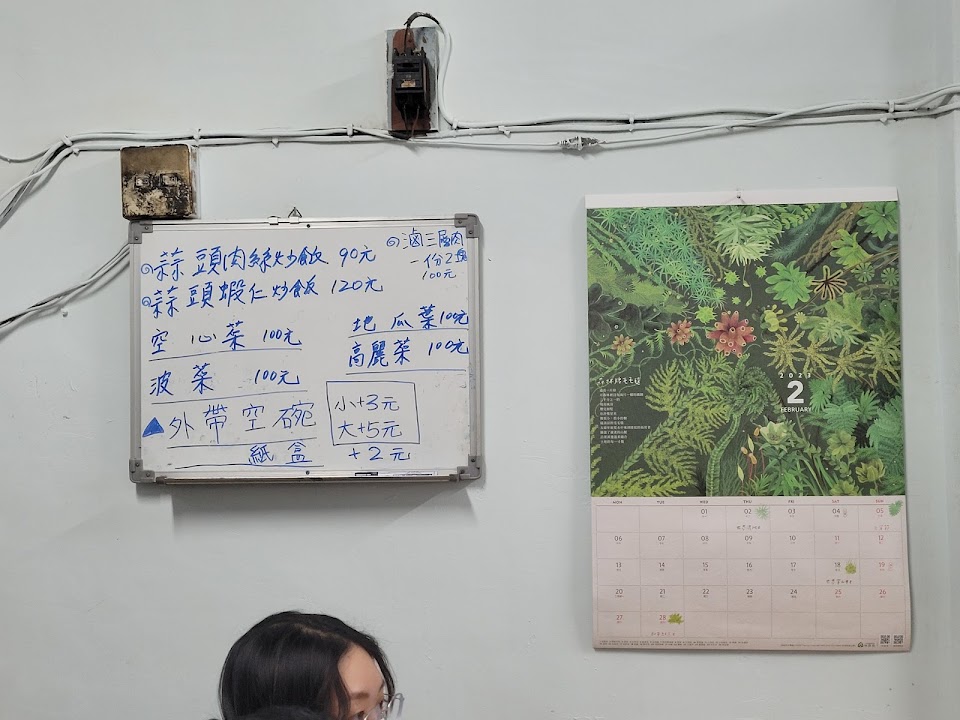 ◎蒜頭肉絲炒飯 90元
◎滷三層肉
一份2塊
100元
◎蒜頭蝦仁炒飯 120元
空心菜 100元
地瓜葉100元
高麗菜 100元
波菜 100元
▲外帶空碗
小+3元
大+5元
紙盒 +2元
2023
2
FEBRUARY
MON TUE WED THU FRI SAT SUN
01 02 03 04 05
06 07 08 09 10 11 12
13 14 15 16 17 18 19
20 21 22 23 24 25 26
27 28